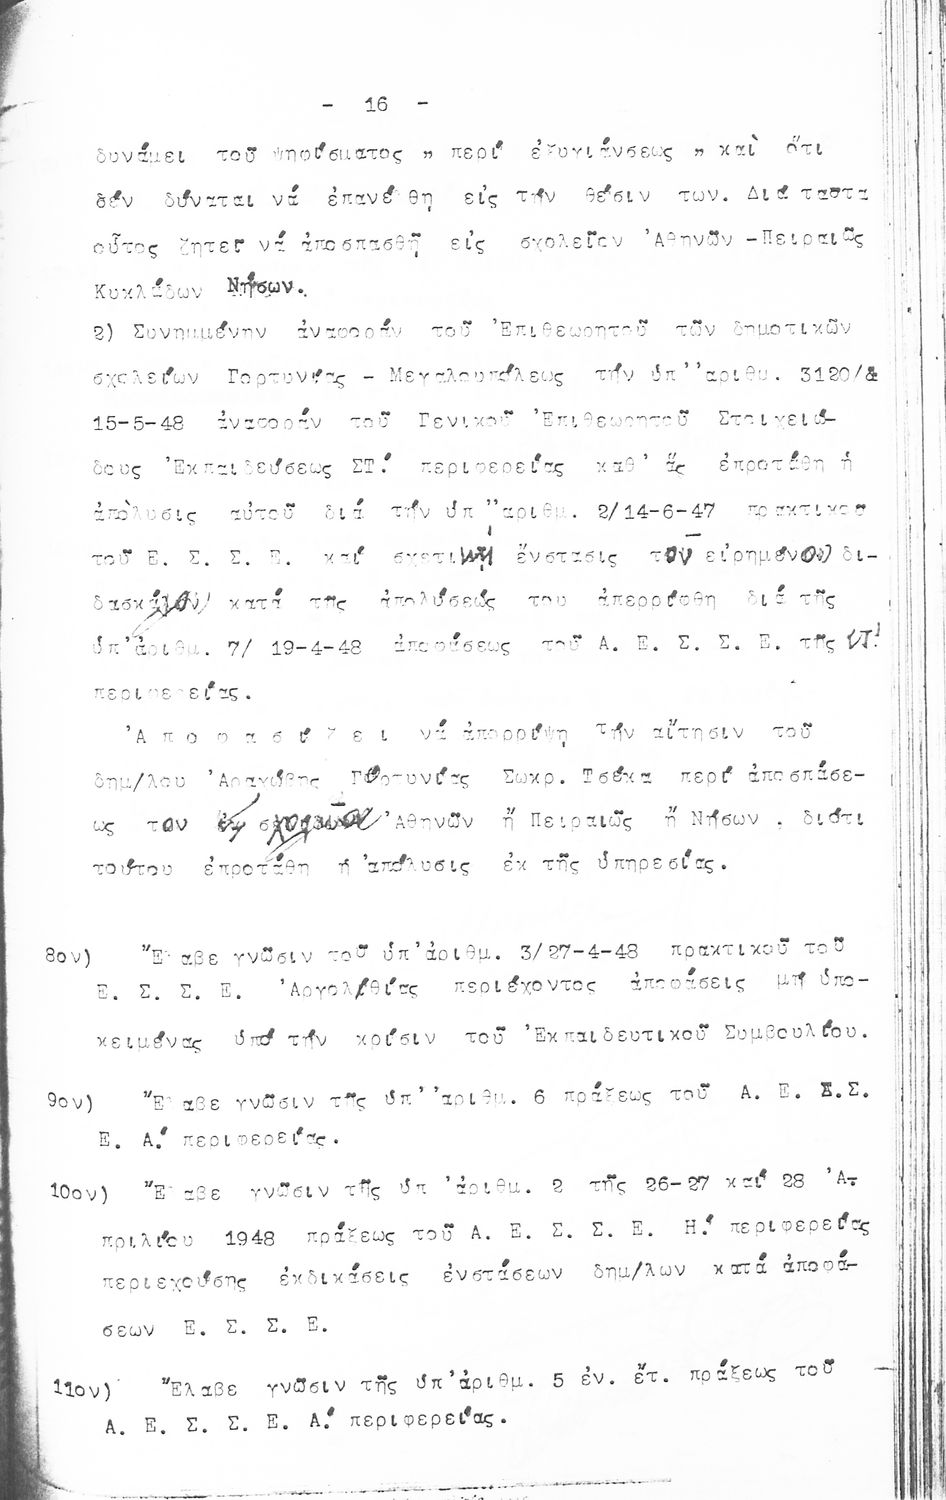 - 16 -
δυνάμει τοῦ ψηφίσματος " περί ἐξυγιάνσεως " καί ὅτι
δέν δύναται νά ἐπανέλθη εἰς τήν θέσιν των. Διά ταῦτα
οὗτος ζητεῖ νά ἀποσπασθῆ εἰς σχολεῖον Ἀθηνῶν -Πειραιῶς
Κυκλάδων Νήσων.
2) Συνημμένην ἀναφοράν τοῦ Ἐπιθεωρητοῦ τῶν δημοτικῶν
σχολείων Γορτυνίας - Μεγαλουπόλεως τήν ὑπ' ἀριθμ. 3120/&
15-5-48 ἀναφοράν τοῦ Γενικοῦ Ἐπιθεωρητοῦ Στοιχειώ-
δους Ἐκπαιδεύσεως ΣΤ.' περιφερείας καθ' ἅς ἐπροτάθη ἡ
ἀπόλυσις αὐτοῦ διά τήν ὑπ' ἀριθμ. 2/14-6-47 πρακτικοῦ
τοῦ Ε. Σ. Σ. Ε. καί σχετική ἔνστασις τοῦ εἰρημένου δι-
δασκάλου κατά της ἀπολύσεώς του ἀπερρίφθη διά τῆς
ὑπ' ἀριθμ. 7/ 19-4-48 ἀποφάσεως τοῦ Α. Ε. Σ. Σ. Ε. τῆς ΣΤ'
περιφερείας.
Ἀ π ο φ α σ ί ζ ε ι νά ἀπορρίψη τήν αἴτησιν τοῦ
δημ/λου Ἀραχώβης Γορτυνίας Σωκρ. Τσέκα περί ἀποσπάσε-
ως του εἰς σχολεῖα Ἀθηνῶν ἤ Πειραιῶς ἤ Νήσων , διότι
τούτου ἐπροτάθη ἡ ἀπόλυσις ἐκ τῆς ὑπηρεσίας.
8ον) Ἔλαβε γνῶσιν τοῦ ὑπ' ἀριθμ. 3/27-4-48 πρακτικοῦ τοῦ
Ε. Σ. Σ. Ε. Ἀργολ/θίας περιέχοντος ἀποφάσεις μή ὑπο-
κειμένας ὑπό τήν κρίσιν τοῦ Ἐκπαιδευτικοῦ Συμβουλίου.
9ον) Ἔλαβε γνῶσιν τῆς ὑπ' ἀριθμ. 6 πράξεως τοῦ Α. Ε. Σ.Σ.
Ε. Α.' περιφερείας.
10ον) Ἔλαβε γνῶσιν τῆς ὑπ' ἀριθμ. 2 τῆς 26-27 καί 28 Ἀ-
πριλίου 1948 πράξεως τοῦ Α. Ε. Σ. Σ. Ε. Η.' περιφερείας
περιεχούσης ἐκδικάσεις ἐνστάσεων δημ/λων κατά ἀποφά-
σεων Ε. Σ. Σ. Ε.
11ον) Ἔλαβε γνῶσιν τῆς ὑπ' ἀριθμ. 5 ἐν. ἔτ. πράξεως τοῦ
Α. Ε. Σ. Σ. Ε. Α.' περιφερείας.